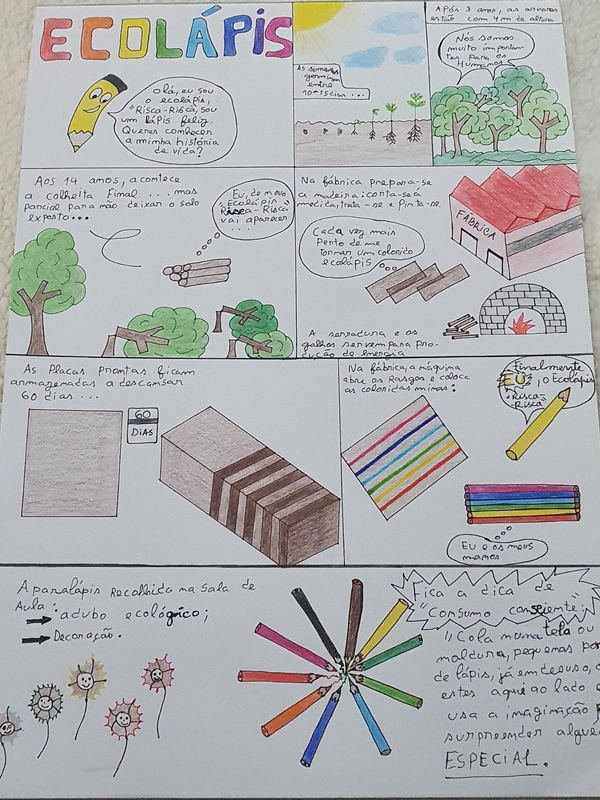 ECOLÁPIS
Olá, eu sou
o ecolápis,
"Risca-Risca, sou
um lápis feliz.
Queres conhecer
a minha história
de vida?
As sementes
germinam
entre
10 e 15 dias ...
Após 3 anos, as árvores
estão com 4 m de altura
Nós somos
muito importan-
tes para os
Humanos
Aos 14 anos, acontece
a colheita Final ... mas
parcial para não deixar o solo
exposto...
Eu, de novo
Ecolápis
Risca-Risca
vai aparecer
...
Na fábrica prepara-se
a madeira: corta-se, é
medica, trata-se e Pinta-se.
FÁBRICA
Cada vez mais
Perto de me
tornar um colorido
ecolápis
A serradura e os
galhos servem para pro-
dução de Energia
As Placas Prontas ficam
armazenadas a descansar
60 dias ...
60
DIAS
Na fábrica, a máquina
abre os Rasgos e coloca
as coloridas minas:
Finalmente
EU, o Ecolápis
Risca-
Risca
Eu e os meus
manos
Aparalápis Recolhida na Sala de
Aula:
adubo ecológico;
Decoração.
Fica a dica de
"Consumo consciente;
"Cola numa tela ou
moldura, pequenas
de lápis, já em desuso,
estes aqui ao lado e
usa a imaginação
surpreender
ESPECIAL.